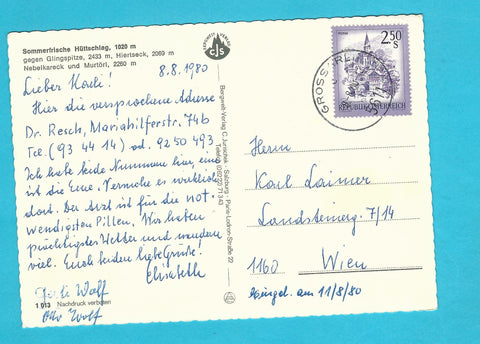 Sommerfrische Hüttschlag, 1020 m
gegen Glingspitze, 2433 m, Hierteck, 2069 m
Nebelkareck und Murtörl, 2260 m
8.8.1980
Lieber Karli!
Hier die versprochene Adresse
Dr. Resch, Mariahilferstr. 74b
Tel. (93 44 14) od. 92 50 493
Ich habe beide Nummern hier, eine
ist die Eine. Versuche es wirklich
dort. Der Arzt ist für die not-
wendigsten Pillen. Wir haben
prächtigstes Wetter und wandern
viel. Euch beiden liebe Grüße!
Elisabeth
Wolf
Otto Wolf
1 013 Nachdruck verboten
BERGWELT VERLAG
cJs
Bergwelt-Verlag C. Jurischek · Salzburg · Paris-Lodron-Straße 22
Telefon (06222) 71 3 43
2.50
S
REPUBLIK ÖSTERREICH
GROSSARL
Herrn
Karl Laimer
Landsteinerg. 7/14
1160 Wien
Eingel. am 11/8/80